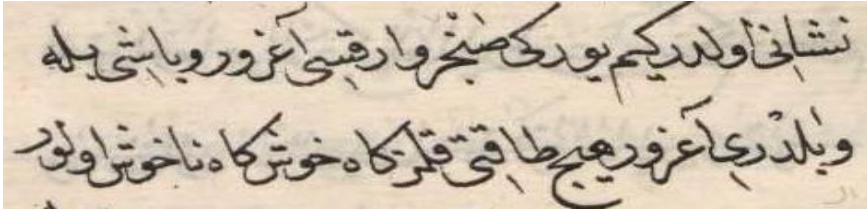 نشانی اولدر کیم یورکی صنجر وارقسی آغرور و باشی بیله
و بلدری آغرور هیچ طاقتی قلمز کاه خوش کاه ناخوش اولور